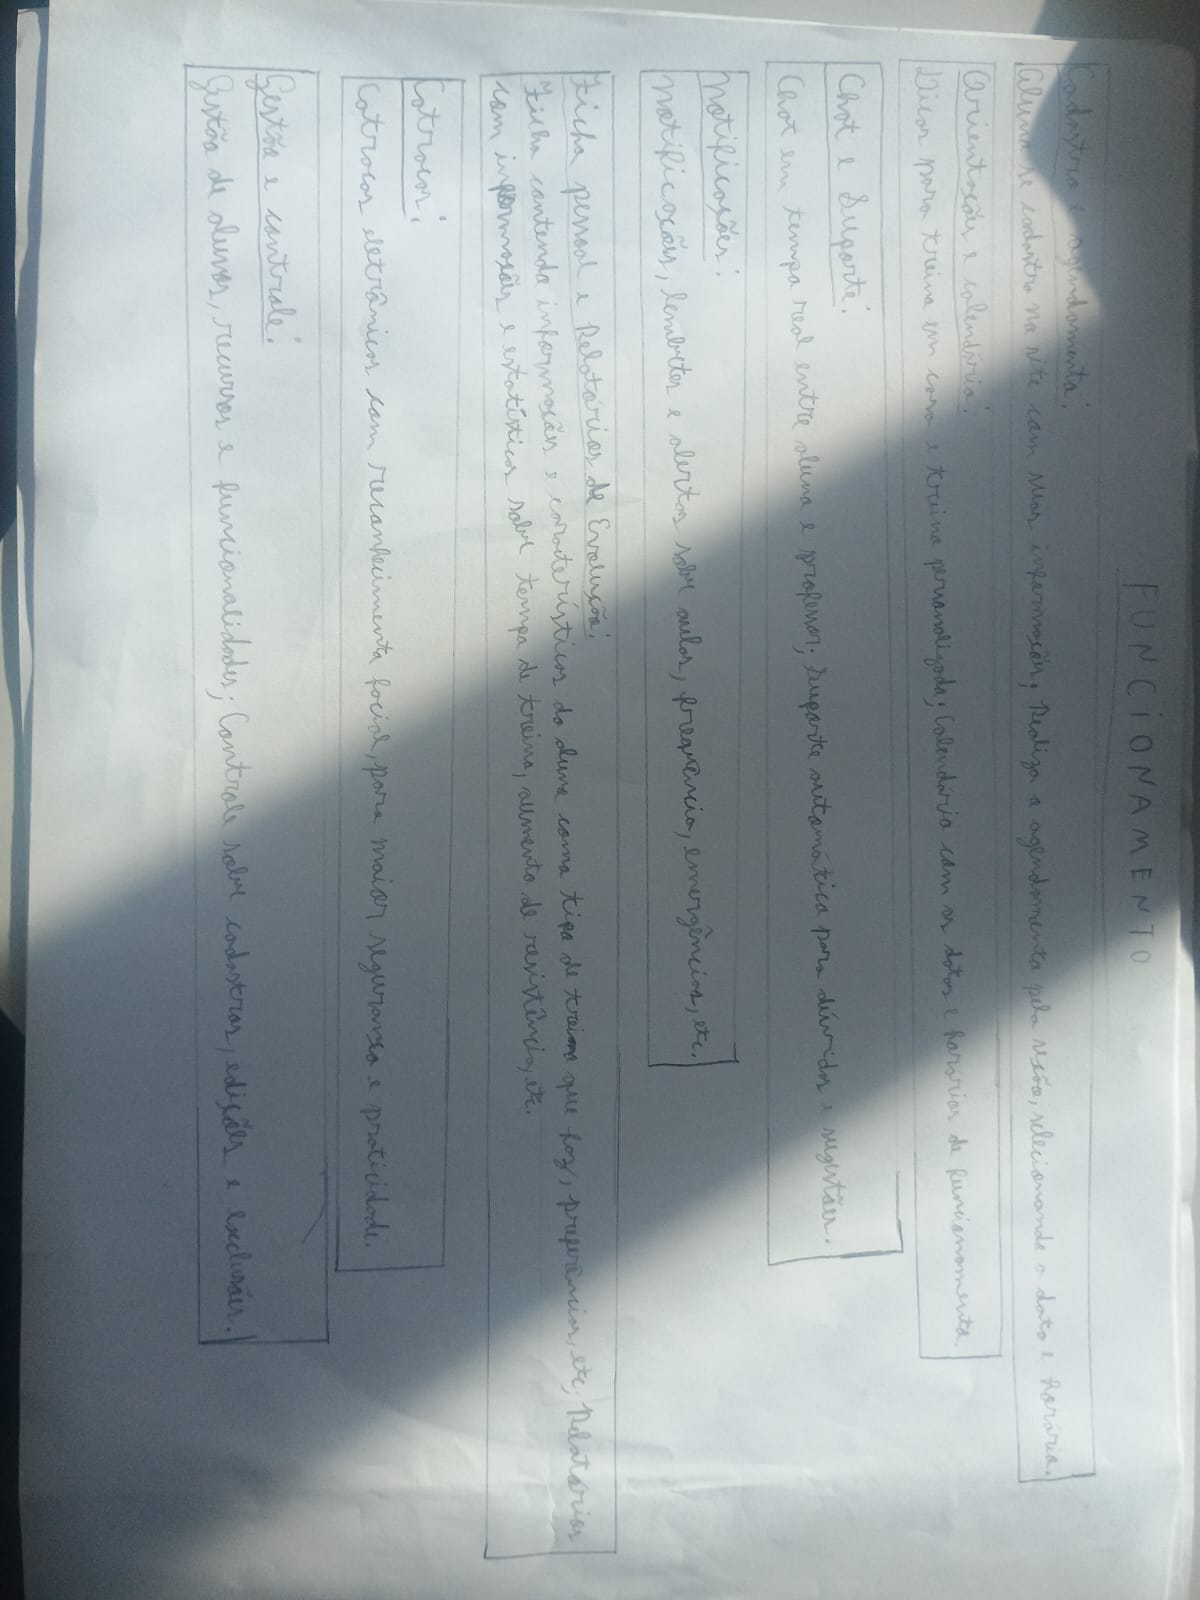 FUNCIONAMENTO
Cadastro e agendamento:
Aluno se cadastra no site com suas informações. Realiza o agendamento pela seção, selecionando a data e horário.
Orientações e calendário:
Dicas para treino em casa e treino personalizado; Calendário com as datas e horários de funcionamento.
Chat e Suporte:
Chat em tempo real entre aluno e professor; Suporte automático para dúvidas e sugestões.
Notificações:
Notificações, lembretes e alertas sobre aulas, frequência, emergências, etc.
Ficha pessoal e Relatórios de Evolução:
Ficha contendo informações e características do aluno como tipo de treino que faz, preferências, etc; Relatórios
com informações e estatísticas sobre tempo de treino, aumento de resistência, etc.
Catracas:
Catracas eletrônicas com reconhecimento facial, para maior segurança e praticidade.
Gestão e controle:
Gestão de alunos, recursos e funcionalidades; Controle sobre cadastros, edições e exclusões.